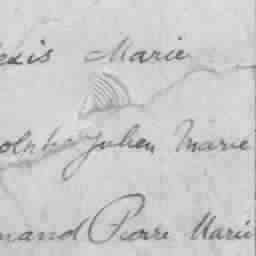 exis Marie
olphe Julien Marie
mand Pierre Marie